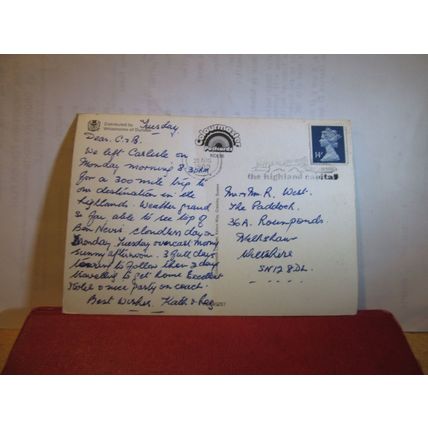 Tuesday
Dear C & B.
We left Carlisle on
Monday morning 8.30AM
for a 300 mile trip to
our destination in the
highlands. Weather grand
so far, able to see top of
Ben Nevis cloudless day on
Monday, Tuesday overcast morn
sunny afternoon. 3 full days
touring to follow then 2 days
travelling to get home Excellent
Hotel & nice party on coach.
Best Wishes, Kath &
Distributed by
Colourmaster
Postcards
14P
the highland capital
Mr & Mrs R. West.
The Paddock.
36A. Roundponds
Melksham
Wiltshire
SN12 8DL.